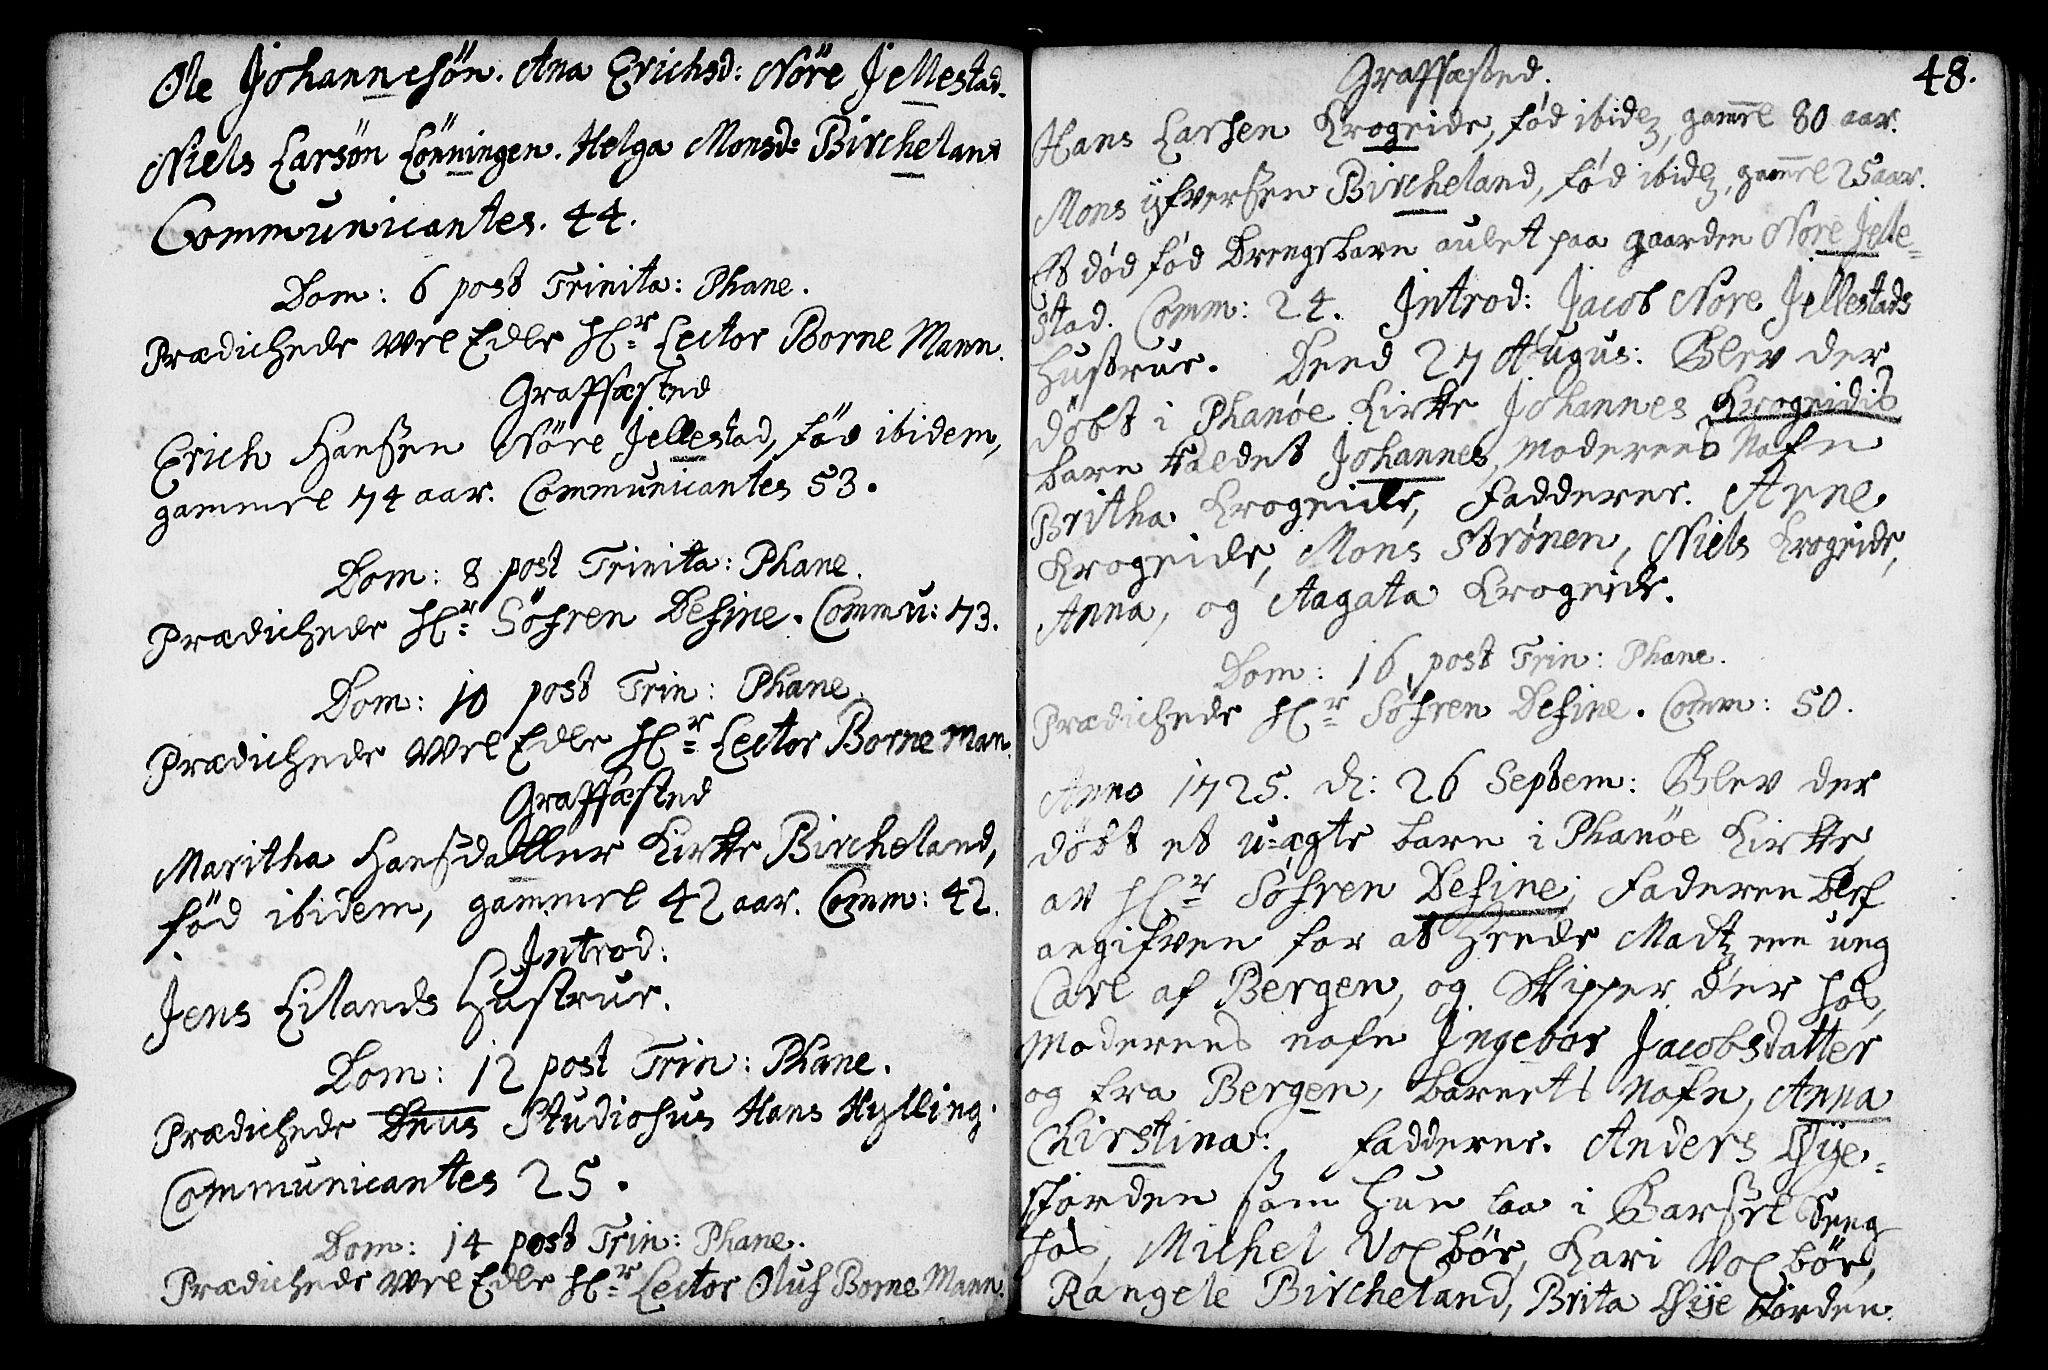 Ole Johannesön. Ana Erichsd: Nöre Jellestad.
Niels Larsön Lönningen. Helga Monsd: Bircheland
Communicantes. 44.
Dom: 6 post Trinita: Phane.
Prædichede Wel Edle Hr: Lector Borne Mann.
Graffæsted
Erich Hanssen Nöre Jellestad, fød ibidem,
gammel 74 aar. Communicantes 53.
Dom: 8 post Trinita: Phane.
Prædichede Hr: Söfren Define. Commu: 73.
Dom: 10 post Trin: Phane.
Prædichede Wel Edle Hr: Lector Borne Man.
Graffæsted
Maritha Hanssdatter Kirke Bircheland,
fød ibidem, gammel 42 aar. Comm: 42.
Introd:
Jens Lilands Hustrue.
Dom: 12 post Trin: Phane.
Prædichede Dnus Studiosus Hans Hylling.
Communicantes 25.
Dom: 14 post Trin: Phane.
Prædichede Wel Edle Hr: Lector Oluf Borne Mann.
48.
Graffæsted.
Hans Larsen Krogeide, fød ibid, gamel 80 aar.
Mons Ifversen Bircheland, fød ibid, gamel 25 aar.
Et død fød Drengebarn aulet paa gaarden Nøre Jelle-
stad. Comm: 24. Introd: Jacob Nøre Jellestads
Hustrue. Dend 27 Augus: Blev der
döbt i Phanöe Kirke Johannes Krogeides
barn kaldet Johannes, Moderens Nafn
Britha Krogeide, Fadderne. Arne
Krogeide, Mons Strønen, Niels Krogeide,
Anna, og Aagata Krogeide.
Dom: 16 post Trin: Phane.
Prædichede Hr: Söfren Define. Comm: 50.
Anno 1725. d: 26 Septem: Blev der
döbt et u-ægte barn i Phanöe Kirke
av Hr: Söfren Define; Faderen blef
angifven for at hede Madtz een ung
Carl af Bergen, og Skipper der hos,
Moderens nafn Ingebor Jacobsdatter
og fra Bergen, barnets Nafn, Anna
Chirstina: Fadderne. Anders
som hun laa i Barssel Seng
hos, Michel Voxbör, Kari Voxbör,
Rangele Bircheland, Brita